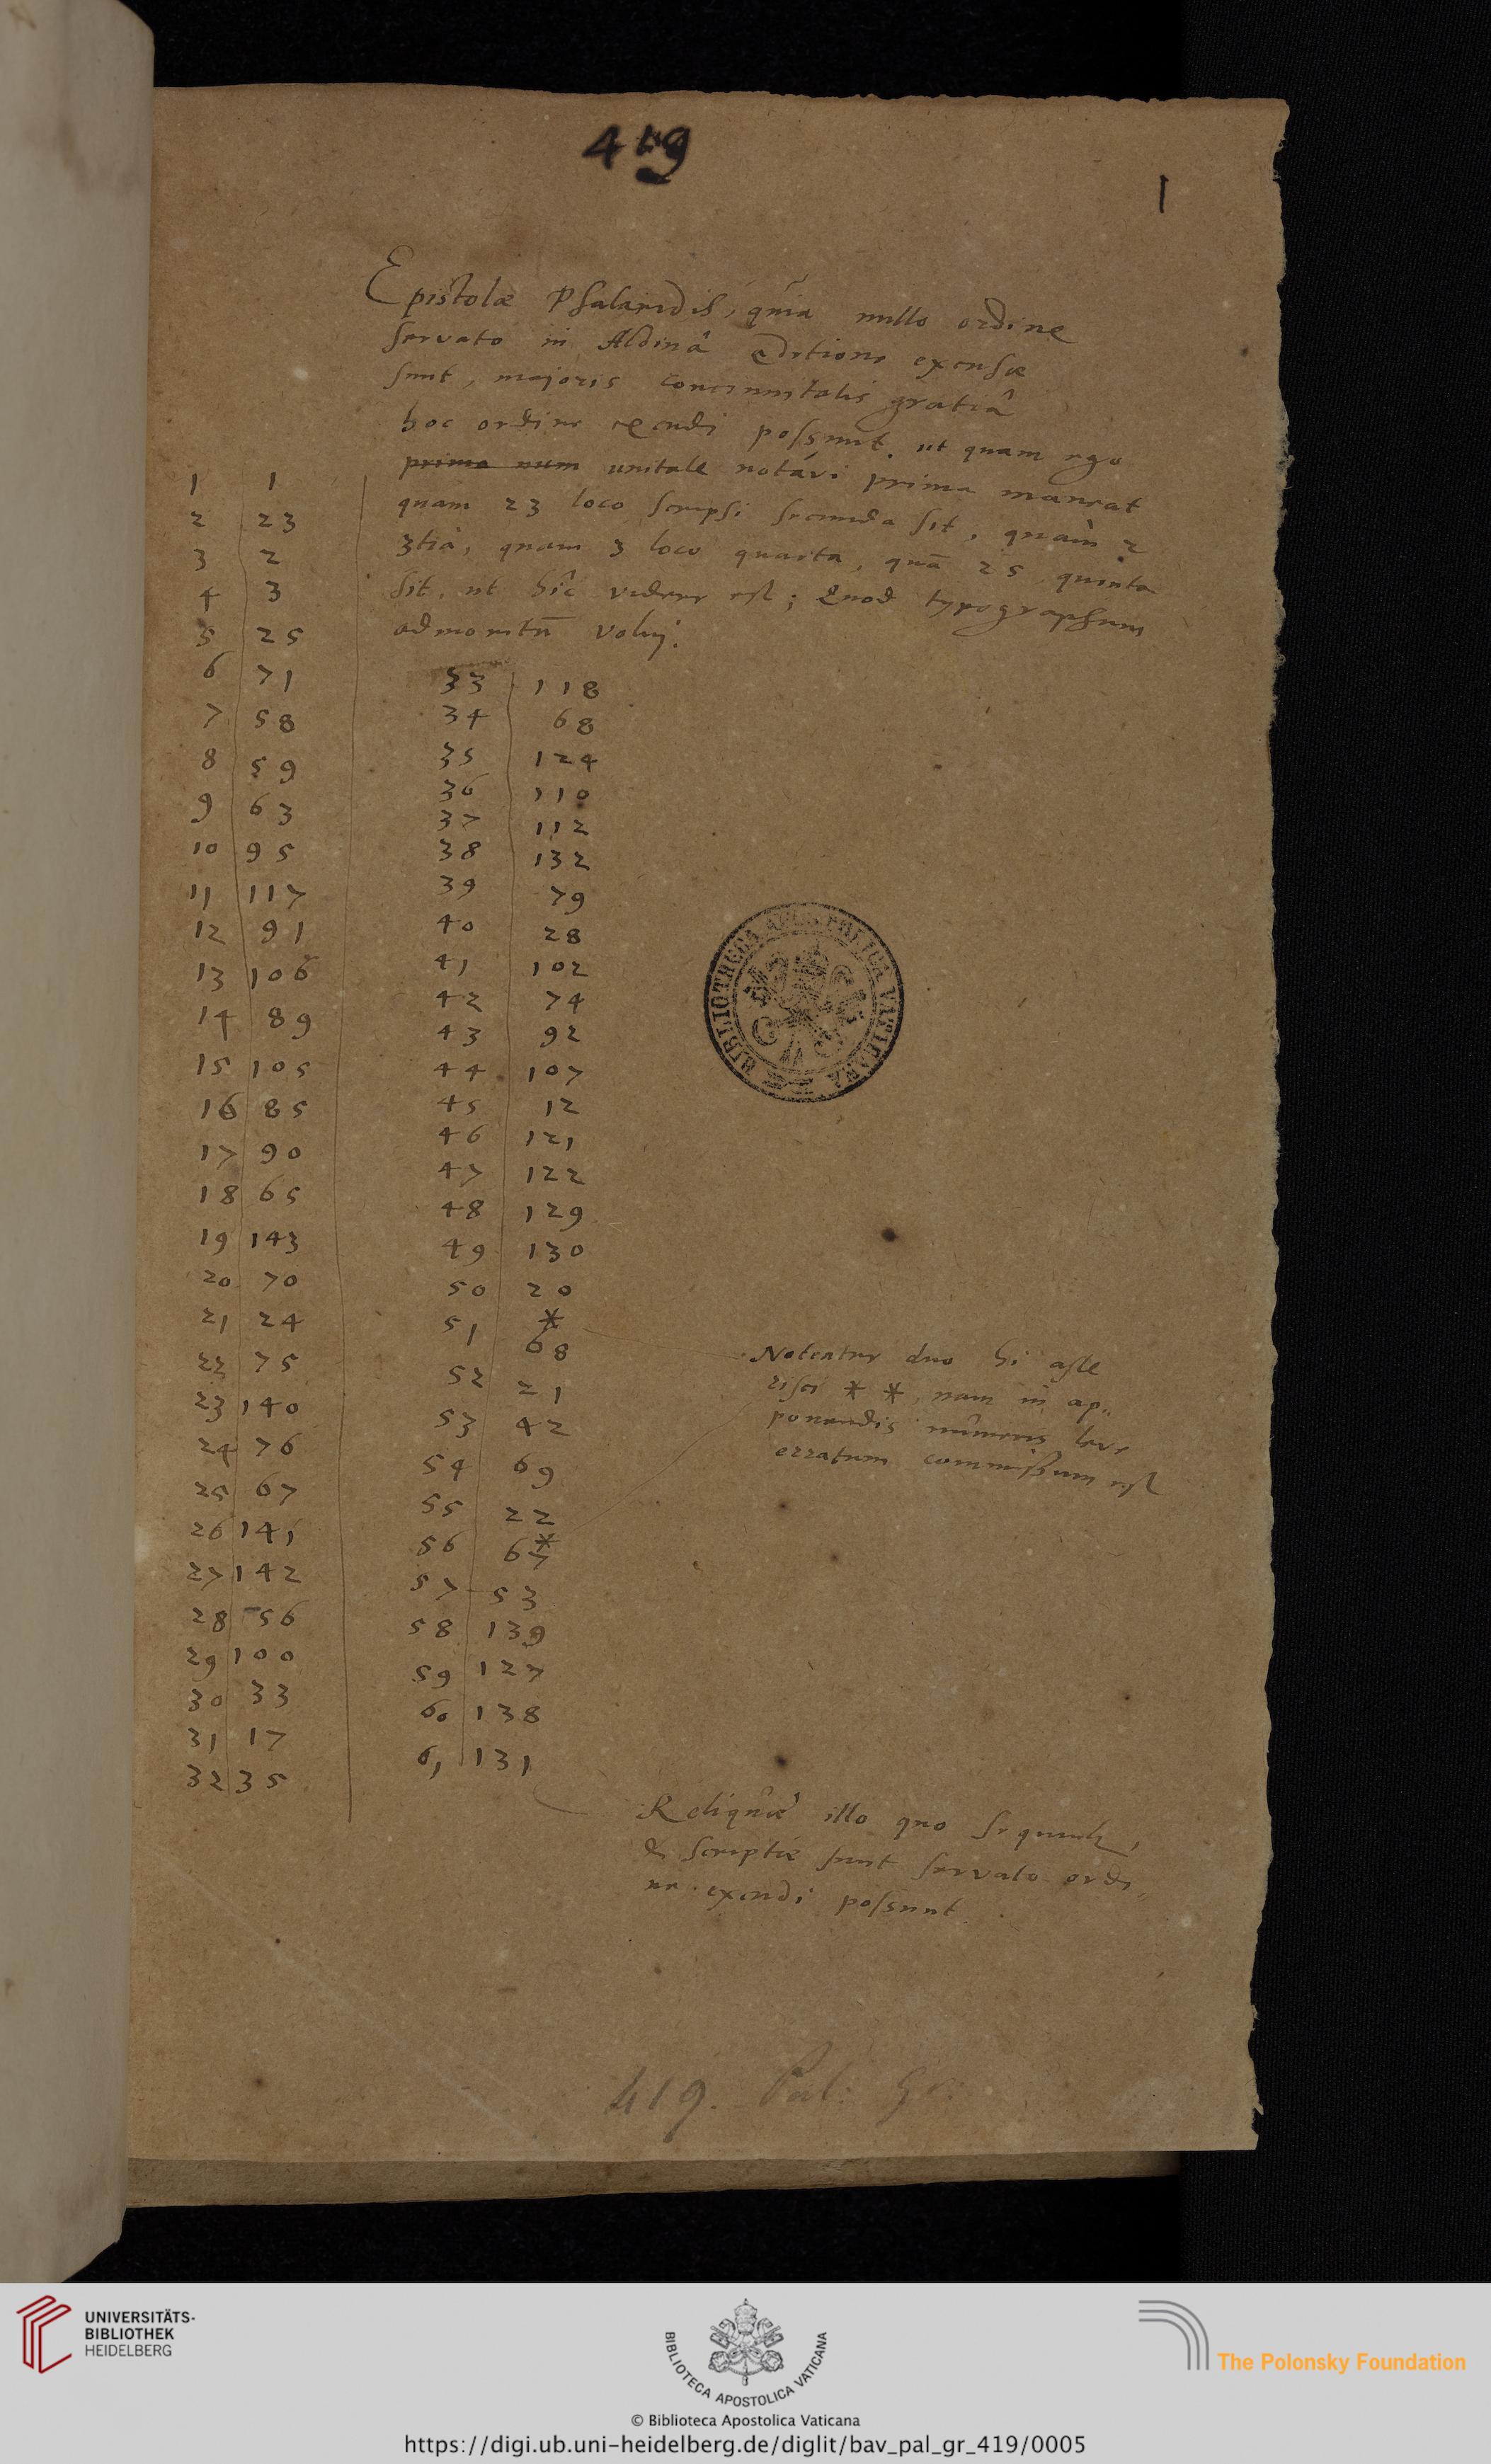 419
1
Epistolæ Phalaridis, quia nullo ordine
servato in Aldinâ editione excusæ
sunt, majoris concinnitatis gratiâ
hoc ordine excudi possunt. ut quam ego
prima num unitate notavi prima maneat
quam 23 loco scripsi secunda sit, quam 2
3tia, quam 3 loco quarta, quā 25 quinta
sit, ut hîc videre est; Quod typographum
admonitū volui.
1 1
2 23
3 2
4 3
5 25
6 71
7 58
8 59
9 63
10 95
11 117
12 91
13 106
14 89
15 105
16 85
17 90
18 65
19 143
20 70
21 24
22 75
23 140
24 76
25 67
26 141
27 142
28 56
29 100
30 33
31 17
32 35
33 118
34 68
35 124
36 110
37 112
38 132
39 79
40 28
41 102
42 74
43 92
44 107
45 12
46 121
47 122
48 129
49 130
50 20
51 * 68
52 21
53 42
54 69
55 22
56 67 *
57 53
58 139
59 127
60 138
61 131
Notentur duo hi aste
risci * *, nam in ap„
ponendis numeris leve
erratum commissum est
Reliquæ illo quo sequuntur,
& scriptæ sunt servato ordi„
ne excudi possunt.
BIBLIOTHECA APOSTOLICA VATICANA
419. Pal: Gr:
UNIVERSITÄTS-
BIBLIOTHEK
HEIDELBERG
BIBLIOTECA APOSTOLICA VATICANA
The Polonsky Foundation
© Biblioteca Apostolica Vaticana
https://digi.ub.uni-heidelberg.de/diglit/bav_pal_gr_419/0005